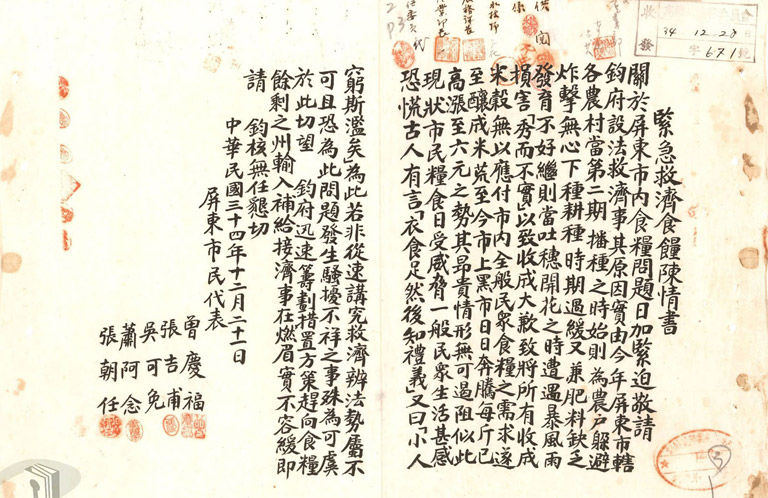 緊急救濟食餽陳情書
關於屏東市內食糧問題日加緊迫敬請
鈞府設法救濟事其原因實由今年屏東市轄
各農村當第二期播種之時始則為農戶躲避
炸擊無心下種耕種時期過緩又兼肥料缺乏
發育不好繼則當吐穗開花之時遭遇暴風雨
損害「秀而不實以致收成大歉致將所有收成
米穀無以應付市內全般民眾食糧之需求遂
至釀成米荒至今市上黑市日日奔騰每斤已
高漲至六元之勢其昂貴情形無可遏阻似此
現狀市民糧食日受威脅一般民眾生活甚感
恐慌古人有言「衣食足然後知禮義」又曰「小人
窮斯濫矣」為此若非從速講究救濟辦法勢屬不
可且恐為此問題發生騷擾不祥之事殊為可虞
於此切望 鈞府迅速籌劃措置方策趕向食糧
餘剩之州輸入補給接濟事在燃眉實不容緩即
請 鈞核無任懇切
中華民國三十四年十二月二十一日
屏東市民代表
曾慶福
張吉甫
吳可免
蕭阿念
張朝任
收
發
34 12 28
字 671 號